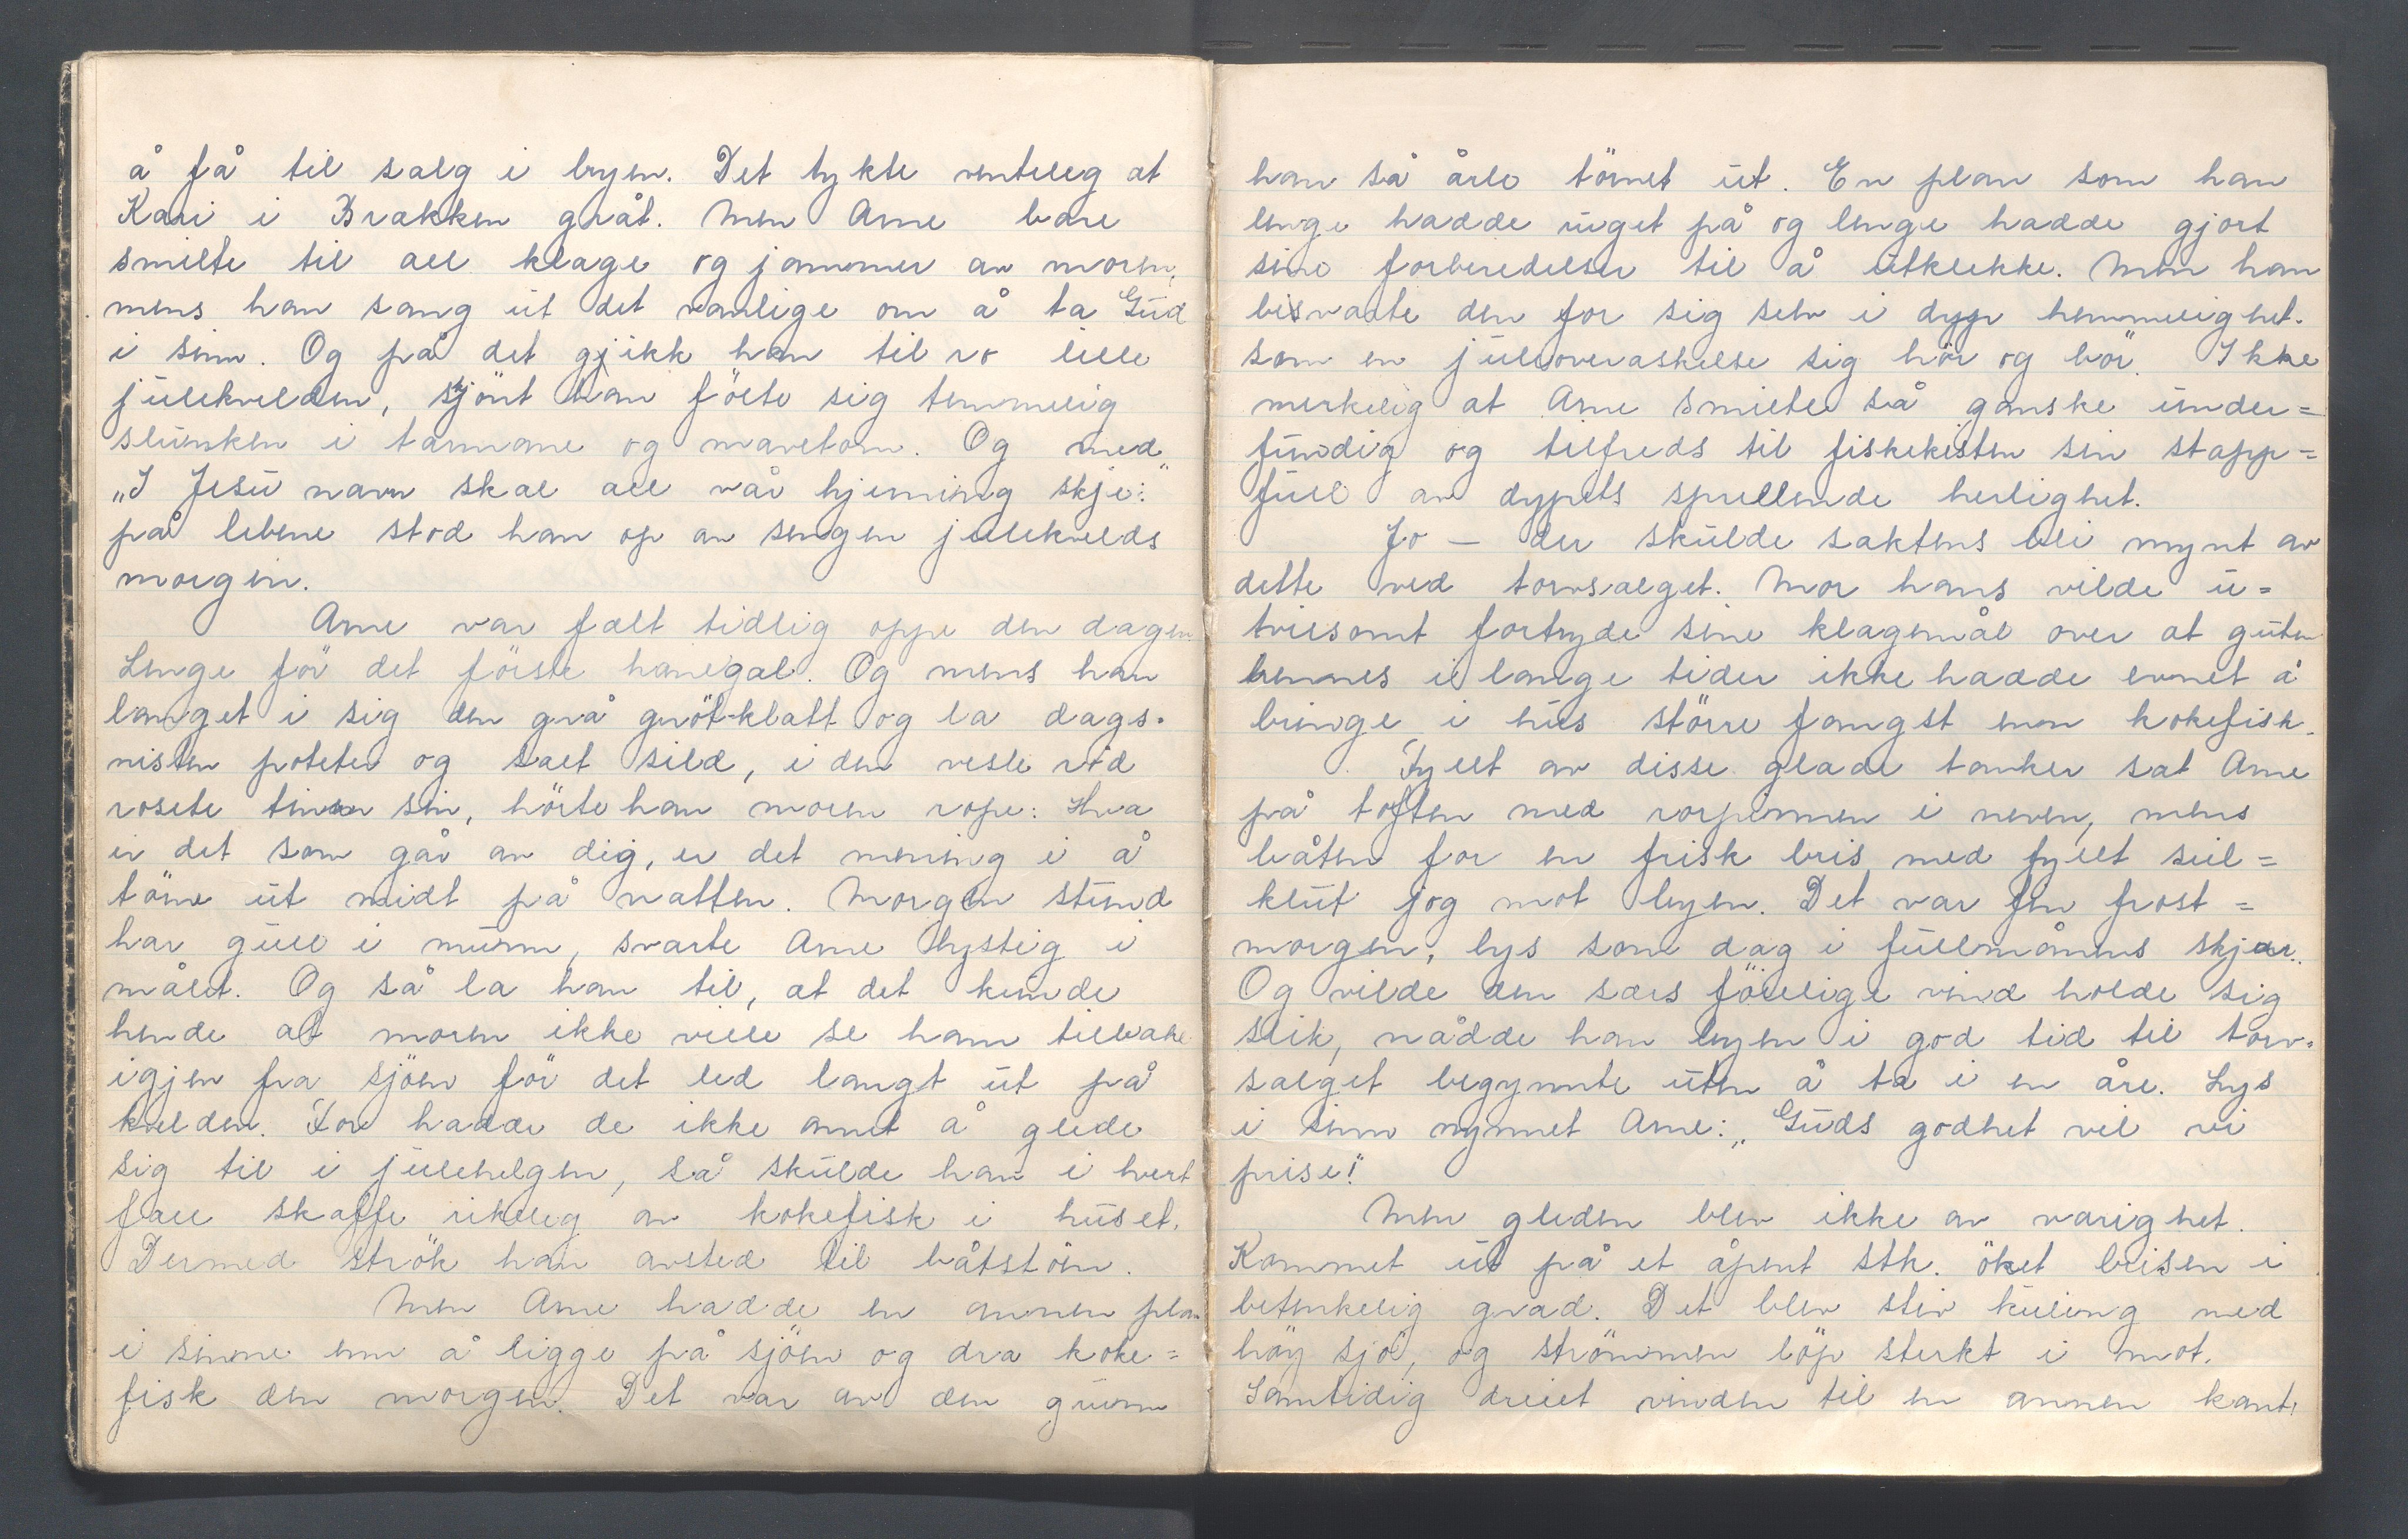 å få til salg i byen. Det tykte venteleg at
Kari i Brækken gråt. Men Arne bare
smilte til all klage og jammer av moren,
mens han sang ut det vanlige om å ta Gud
i sinn. Og på det gjikk han til ro lille
julekvelden, skjönt han fölte sig temmelig
slunken i tarmane og mavetom. Og med
„I Jesu navn skal all vår gjerning skje:"
på lebene stod han op av sengen julekvelds
morgen.
Arne var fælt tidlig oppe den dagen.
Lenge för det förste hanegal. Og mens han
langet i sig den grå grötklatt og la dags-
nisten poteter og salt sild, i den vesle
rosete tinen sin, hörte han moren rope: Hva
er det som går av dig, er det mening i å
töne ut midt på natten. Morgen stund
har gull i munn, svarte Arne lystig i
målet. Og så la han til, at det kunde
hende at moren ikke ville se ham tilbake
igjen fra sjöen för det led langt ut på
kvelden. For hadde de ikke annet å glede
sig til i julehelgen, så skulde han i hvert
fall skaffe rikelig av kokefisk i huset.
Dermed strök han avsted til båtstöen.
Men Arne hadde en annen plan
i sinne enn å ligge på sjöen og dra koke=
fisk den morgen. Det var av den grunn
han så årle törnet ut. En plan som han
lenge hadde ruget på og lenge hadde gjort
sine forberedelser til å utklekke. Men han
bevarte den for sig selv i dyp hemmelighet.
som en juleoveraskelse sig hör og bör. Ikke
merkelig at Arne smilte så ganske under=
fundig og tilfreds til fiskekisten sin stapp=
full av dypets sprellende herlighet.
Jo — der skulde saktens bli mynt av
dette ved torvsalget. Mor hans vilde u=
tvilsomt fortryde sine klagemål over at guten
hennes i lange tider ikke hadde evnet å
bringe i hus större fangst enn kokefisk.
Fyllt av disse glade tanker sat Arne
på toften med rorpinnen i neven, mens
båten for en frisk bris med fyllt seil=
klut jog mot byen. Det var fin frost=
morgen, lys som dag i fullmånens skjær.
Og vilde den særs förelige vind holde sig
slik, nådde han byen i god tid til torv-
salget begynnte uten å ta i en åre. Lys
i sinn nynnet Arne: „Guds godhet vil vi
prise!"
Men gleden blev ikke av varighet.
Kommet ut på et åpent stk. öket brisen i
betenkelig grad. Det blev stiv kuling med
höy sjö, og strömmen löp sterkt i mot.
Samtidig dreiet vinden til en annen kant,